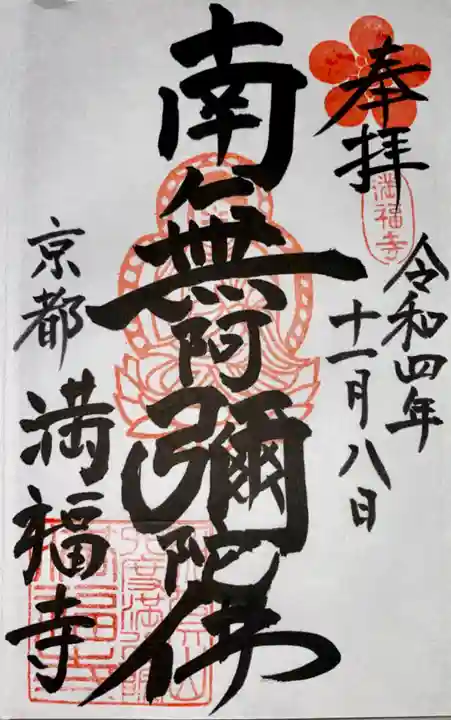 奉拝
満福寺
令和四年
十一月八日
南無阿彌陀佛
京都
満福寺